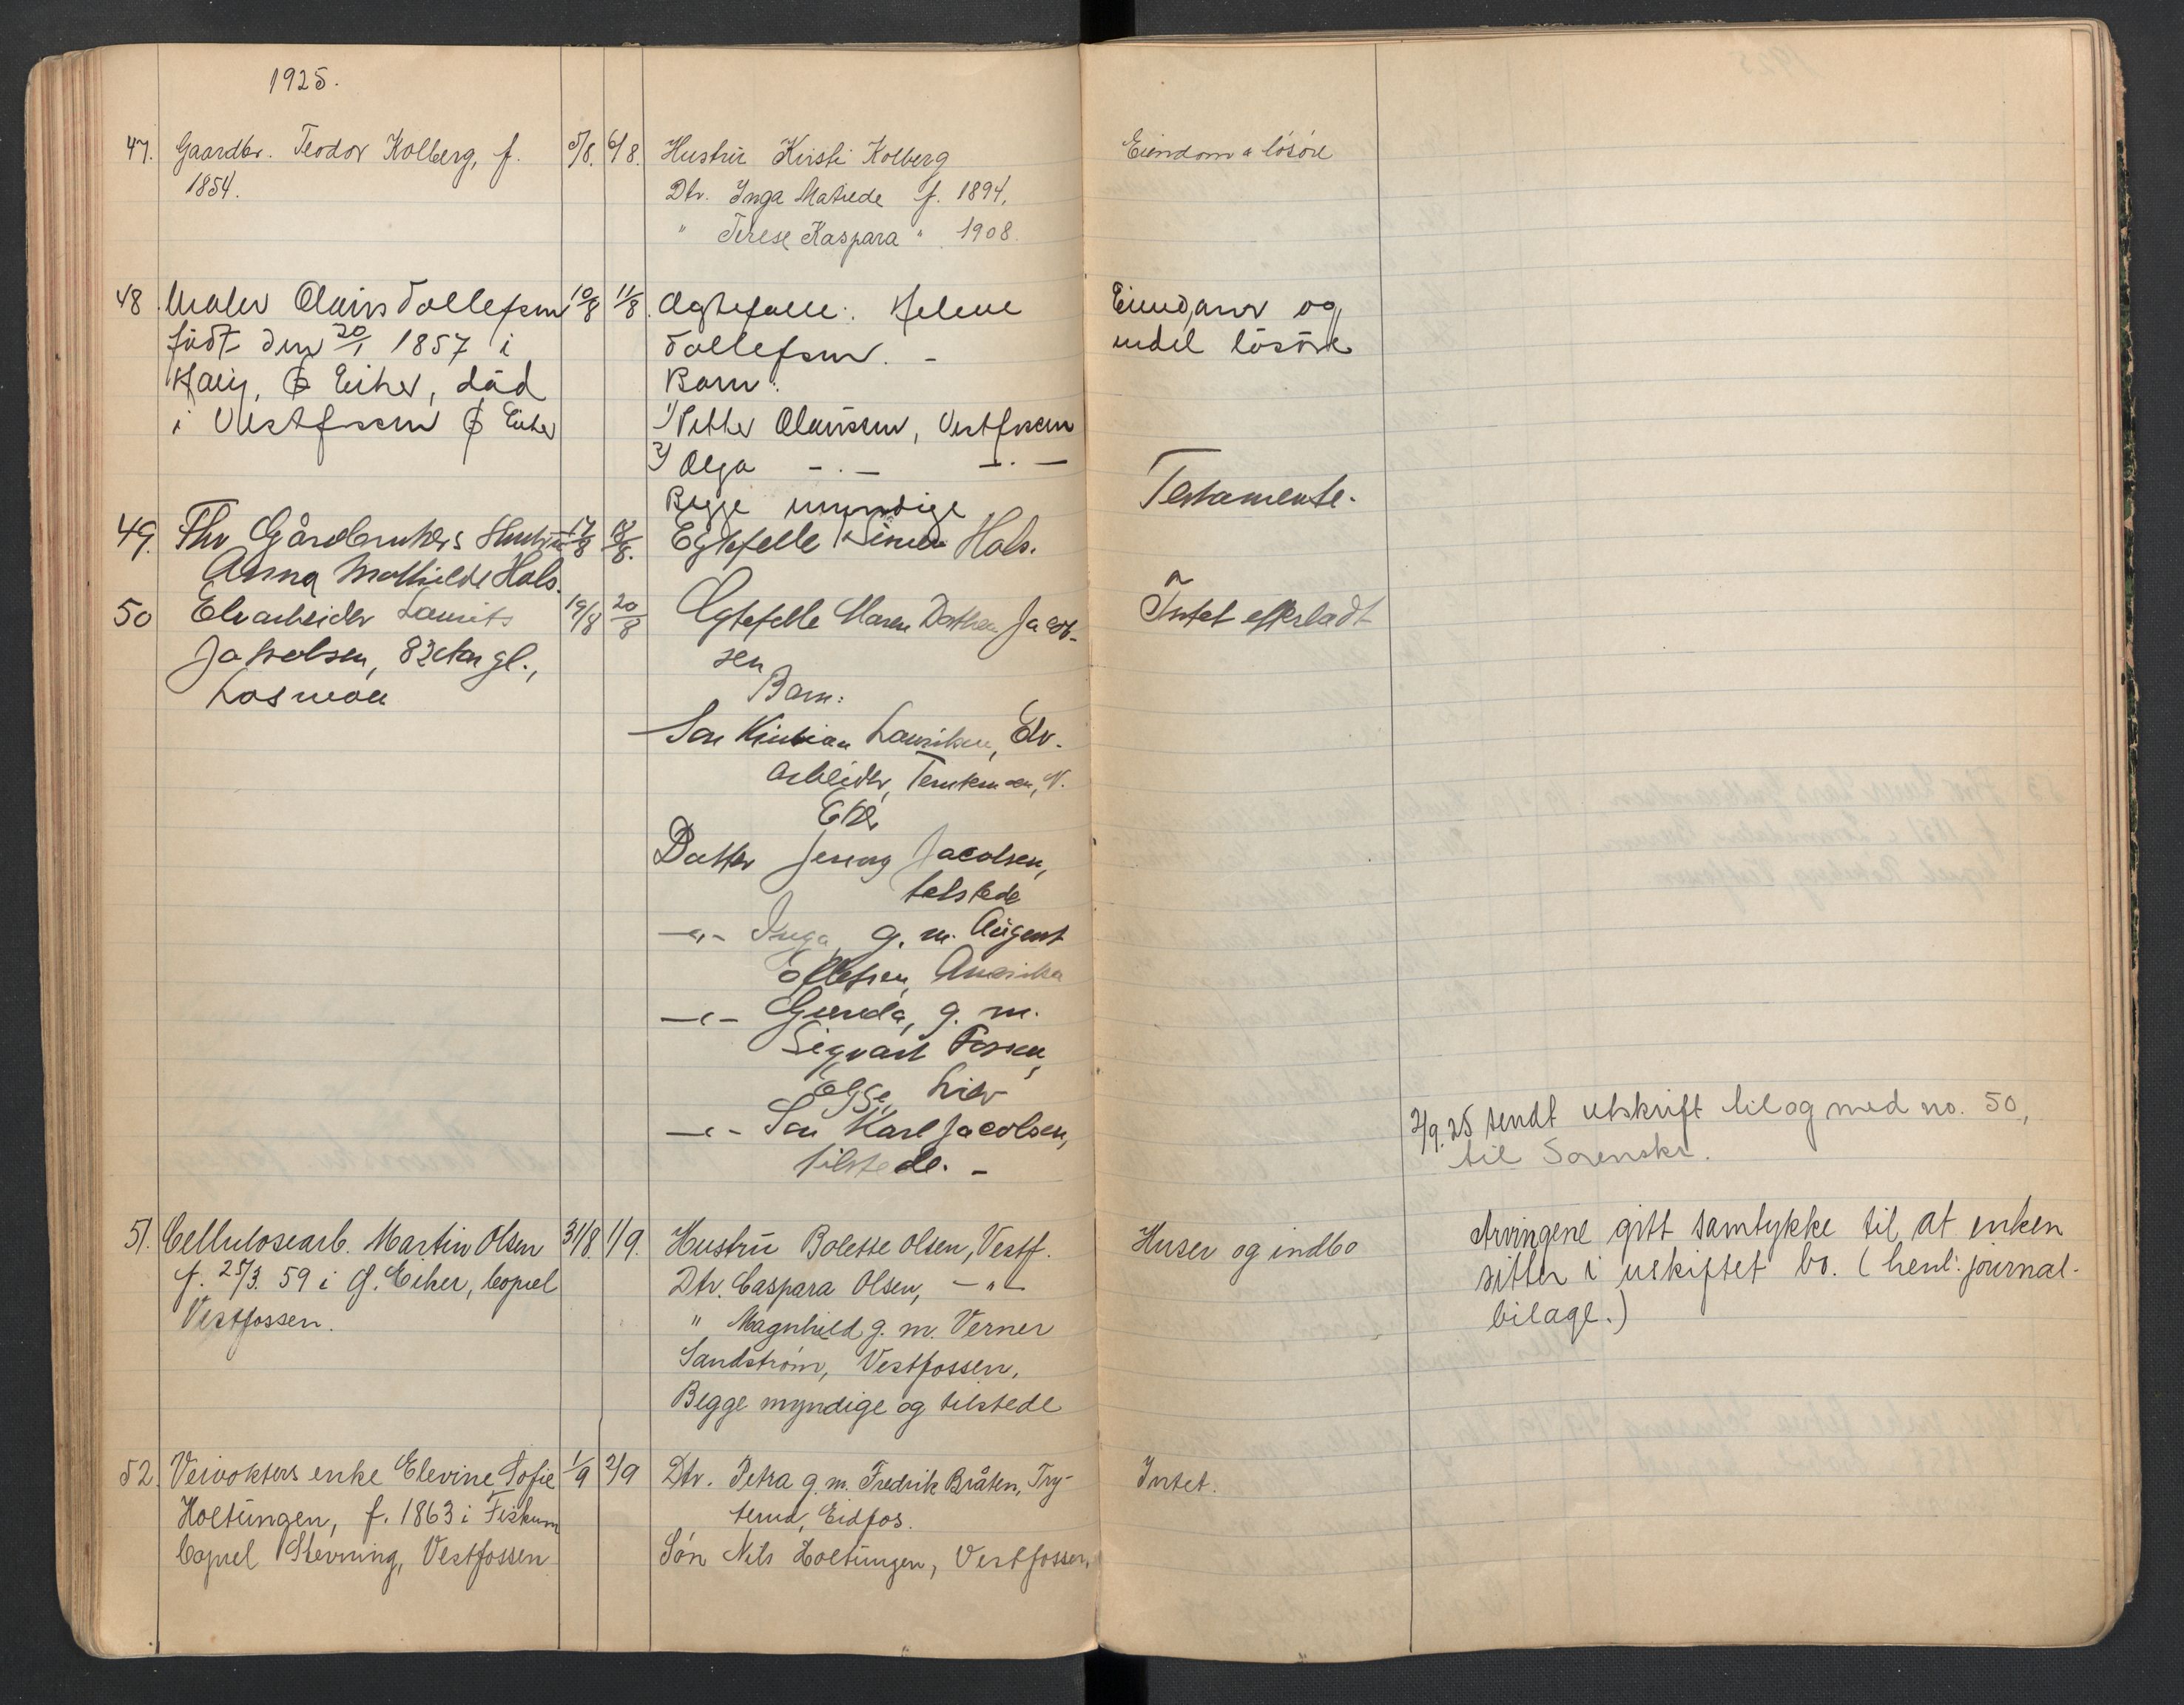 1925.
47. Gaardbr. Teodor Kolberg, f. 5/8. 6/8. Hustru Kirsti Kolberg Eiendom & lösöre
1854. Dtr. Inga Matilde f. 1894.
" Terese Kaspara " 1908.
48. Maler Olaus Tollefsen 10/8 11/8. Ægtefælle: Helene Eiendom og
født den 20/1 1857 i Tollefsen. - endel lösöre
Ø Eiker, død Barn:
i Vestfossen Ø Eiker 1/ Olaussen, Vestfossen
2/ Olga -.- -.-
Begge
49. Fhv Gårdbrukers Hustru 17/8 18/8. Egtefelle Simen Hals. Testamente.
Anna Mathilde Hals.
50 Elvarbeider Laurits 19/8 20/8 Ægtefelle Maren Jacob- Intet efterladt
Jakobsen, 82 Aar gl., sen
Barn:
Søn Kristian Lauritsen, Elv-
arbeider, N.
Eker
Datter Jenny Jacobsen,
tilstede
-"- Inga, g. m. August
Ellefsen, Amerika
-"- Gunda, g. m.
Sigvart Fossen,
Lier
-"- Søn Karl Jacobsen,
tilstede. -
2/9.25 sendt utskrift til og med no. 50,
til Sorenskr.
51. Cellulosearb. Martin Olsen 31/8. 1/9. Hustru Bolette Olsen, Vestf. Huser og indbo Arvingene gitt samtykke til at enken
f. 25/3. 59 i Ø. Eiker, bopæl Dtr. Caspara Olsen, -"- sitter i uskiftet bo. (henl: journal-
Vestfossen. " Magnhild g. m. Verner bilage.)
Sandstrøm, Vestfossen.
Begge myndige og tilstede
52. Veivokters enke Elevine Sofie 1/9 2/9 Dtr. Petra g. m. Fredrik Bråten, Try- Intet.
Holtungen, f. 1863 i Fiskum terud, Eidfos.
bopæl Stevning, Vestfossen Søn Nils Holtungen, Vestfossen.